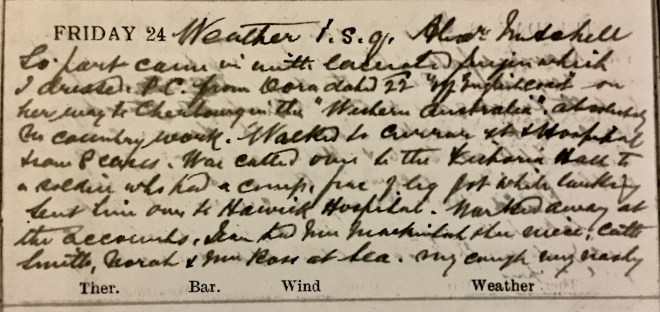 FRIDAY 24 Weather i.s.q. Mitchell
So part came in with lacerated finger which
I dressed. P.C. from Dora dated 22 "off English coast" on
her way to Cherbourg in the "Western Australia" absolutely
no country work. Walked to & Hospital
from 8 cases. Was called over to the Victoria Hall to
a soldier who had a comp. frac of leg got while
Sent him over to Hawick Hospital. Worked away at
the accounts. Jean had Mrs Mackintosh & her niece, Cath
Smith, Norah & Mrs Ross at tea. My cough very nasty
Ther. Bar. Wind Weather